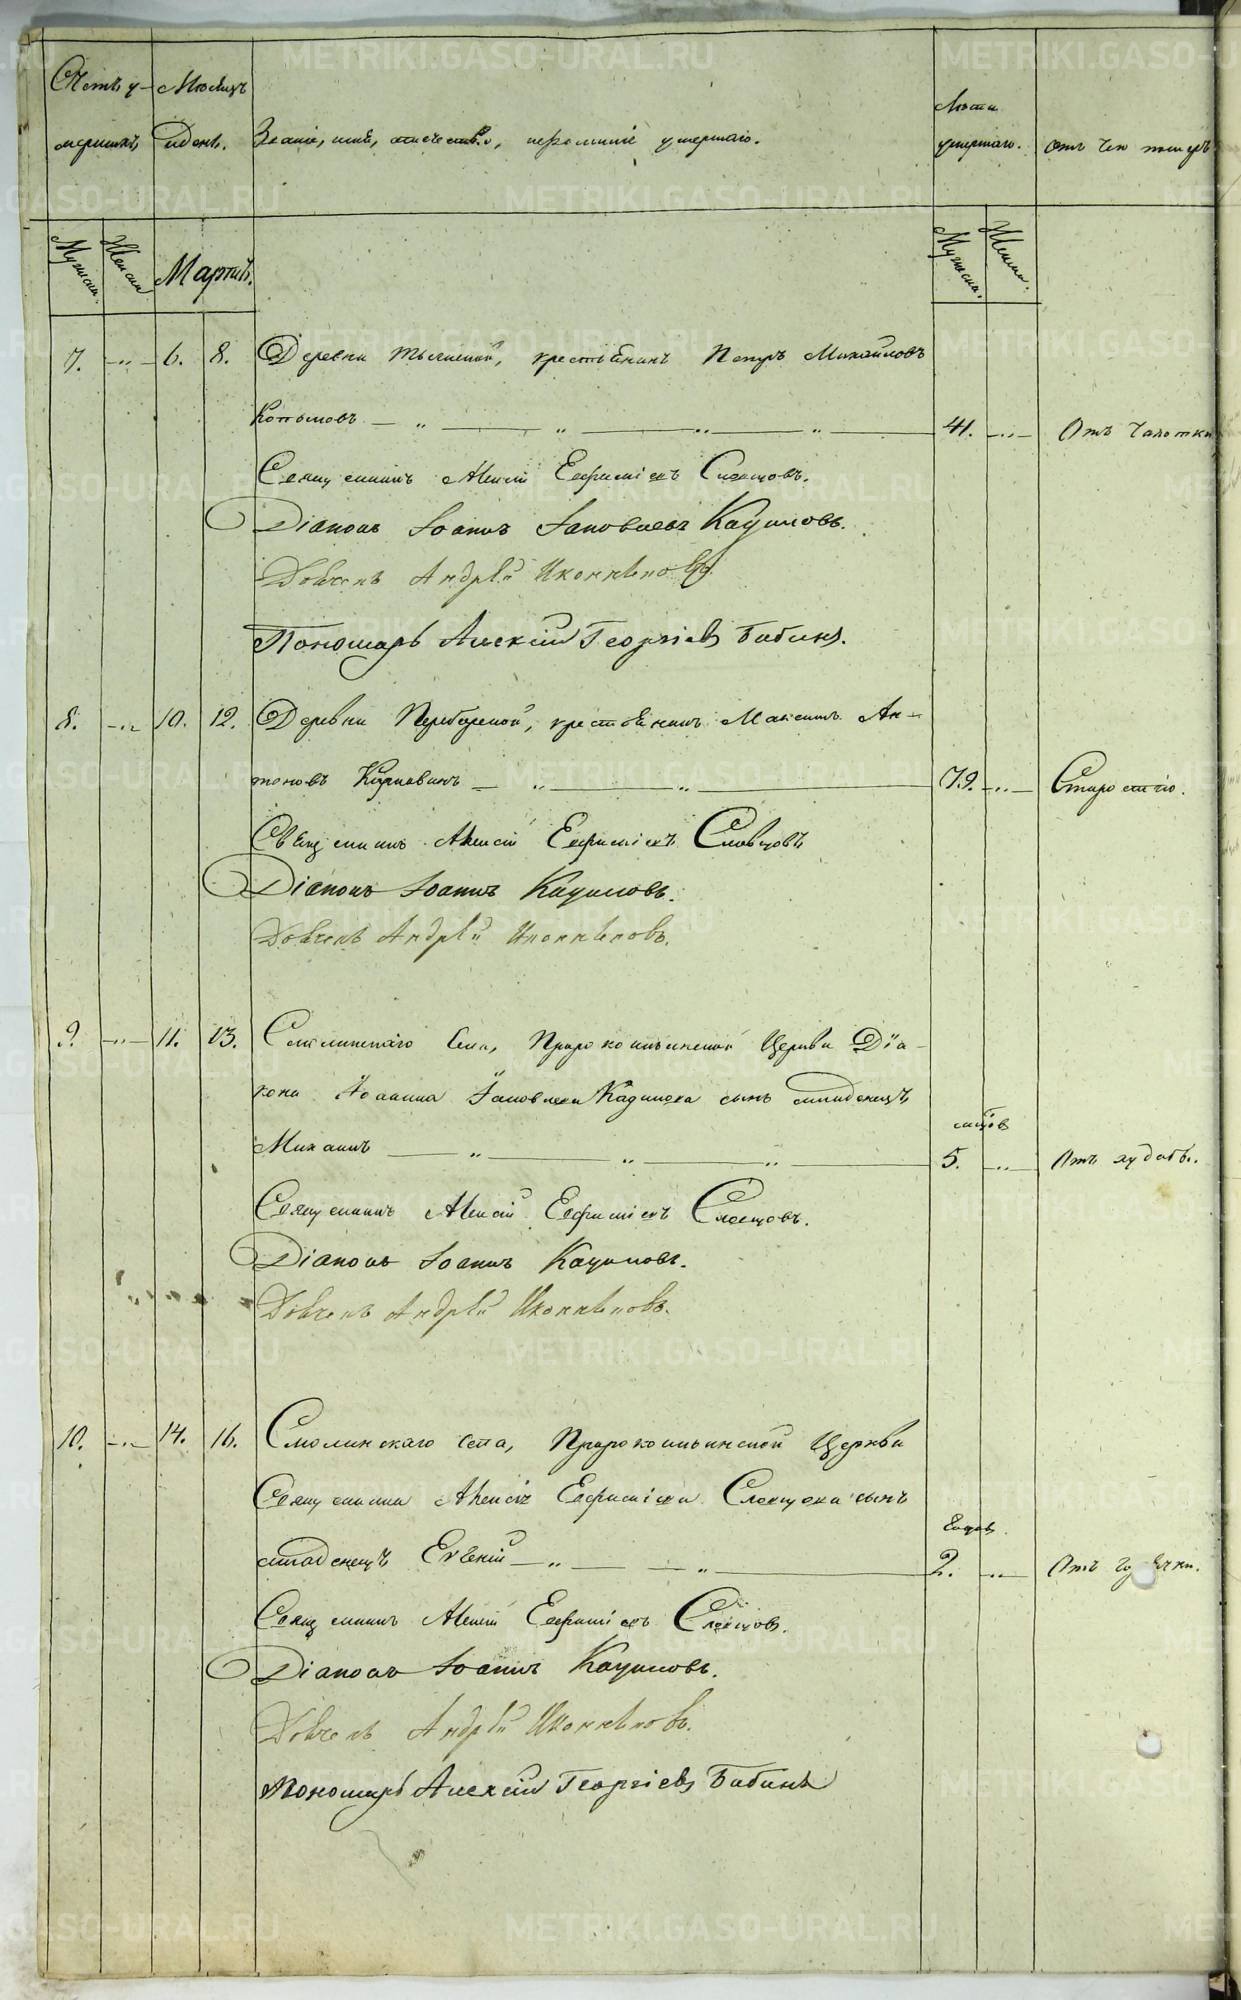 Счетъ у- Мѣсяцъ Лѣта
мершихъ и день. Званіе, имя, отчество, прозваніе умершаго. умершаго. отъ чего померъ
Мужска. Женска Мартъ. Мужска. Женска.
7. — 6. 8. Деревни крестьянинъ Петръ Михайловъ
41. — Отъ чахотки
Священникъ Алексій Евфиміевъ Словцовъ.
Діаконъ Іоаннъ Іаковлевъ Кадиловъ.
Дьячекъ Андрей Иконниковъ
Пономарь Алексій Георгіевъ Бабинъ.
8. — 10. 12. Деревни Переборской, крестьянинъ Максимъ Ан-
тоновъ 79. — Старостію.
Священникъ Алексій Евфиміевъ Словцовъ
Діаконъ Іоаннъ Кадиловъ.
Дьячекъ Андрей Иконниковъ.
9. — 11. 13. Смолинскаго села, Пророкоильинской Церкви Діа-
кона Іоанна Іаковлева Кадилова сынъ младенецъ
мѣсяцовъ
Михаилъ 5. — Отъ худобы.
Священникъ Алексій Евфиміевъ Словцовъ.
Діаконъ Іоаннъ Кадиловъ.
Дьячекъ Андрей Иконниковъ.
10. — 14. 16. Смолинскаго села, Пророкоильинской Церкви
Священника Алексія Евфиміева Словцова сынъ
годовъ.
младенецъ Евгеній 2. — Отъ
Священникъ Алексій Евфиміевъ Словцовъ.
Діаконъ Іоаннъ Кадиловъ.
Дьячекъ Андрей Иконниковъ.
Пономарь Алексій Георгіевъ Бабинъ
METRIKI.GASO-URAL.RU